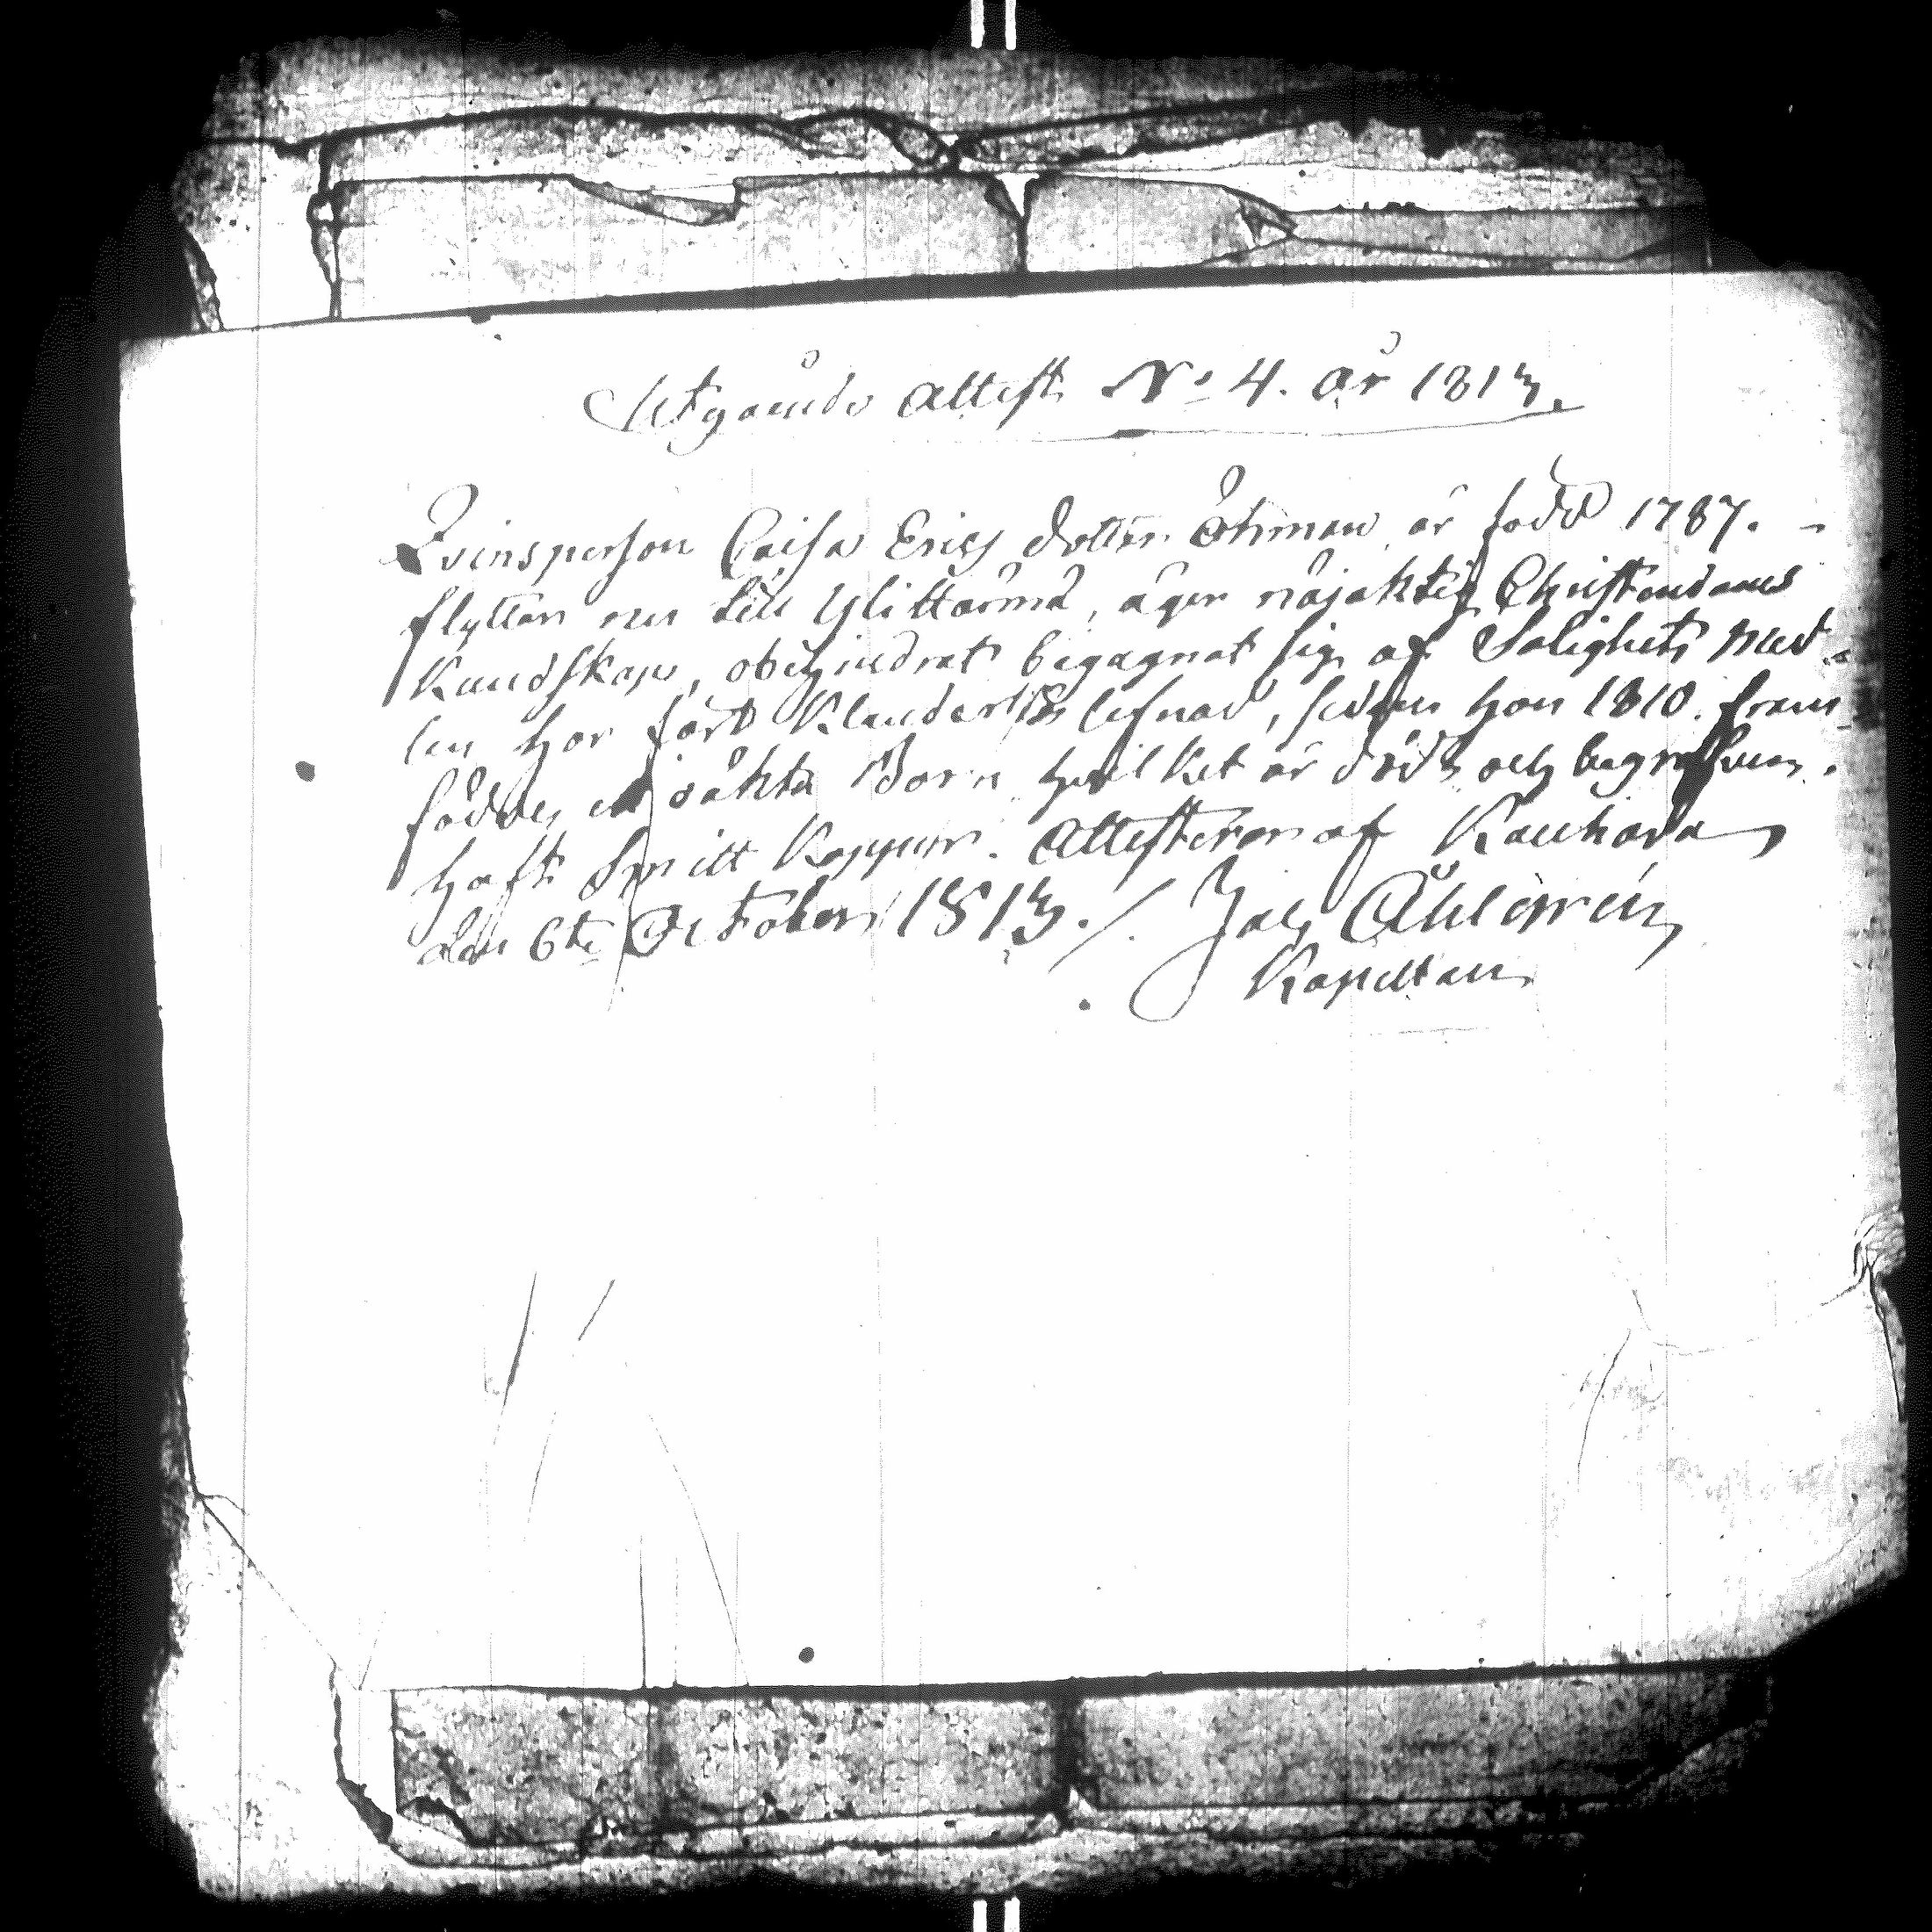 Utgående Attest N:o 4. år 1813.
Qvinsperson Caisa Ericsdotter Öhrman, är född 1787. -
flyttar nu till Ylittårnå, äger nöjaktig Christendoms
Kundskap, obehindrat begagnat sig af Salighets med-
len har fört Klanderlös lefnad, sedan hon 1810. fram-
föddes et oäkta Barn hvilket är dödt och begrafven.
haft Smitt Koppor. Attesterar af Kauhava
den 6te October 1813./. Jac,
Kapellan